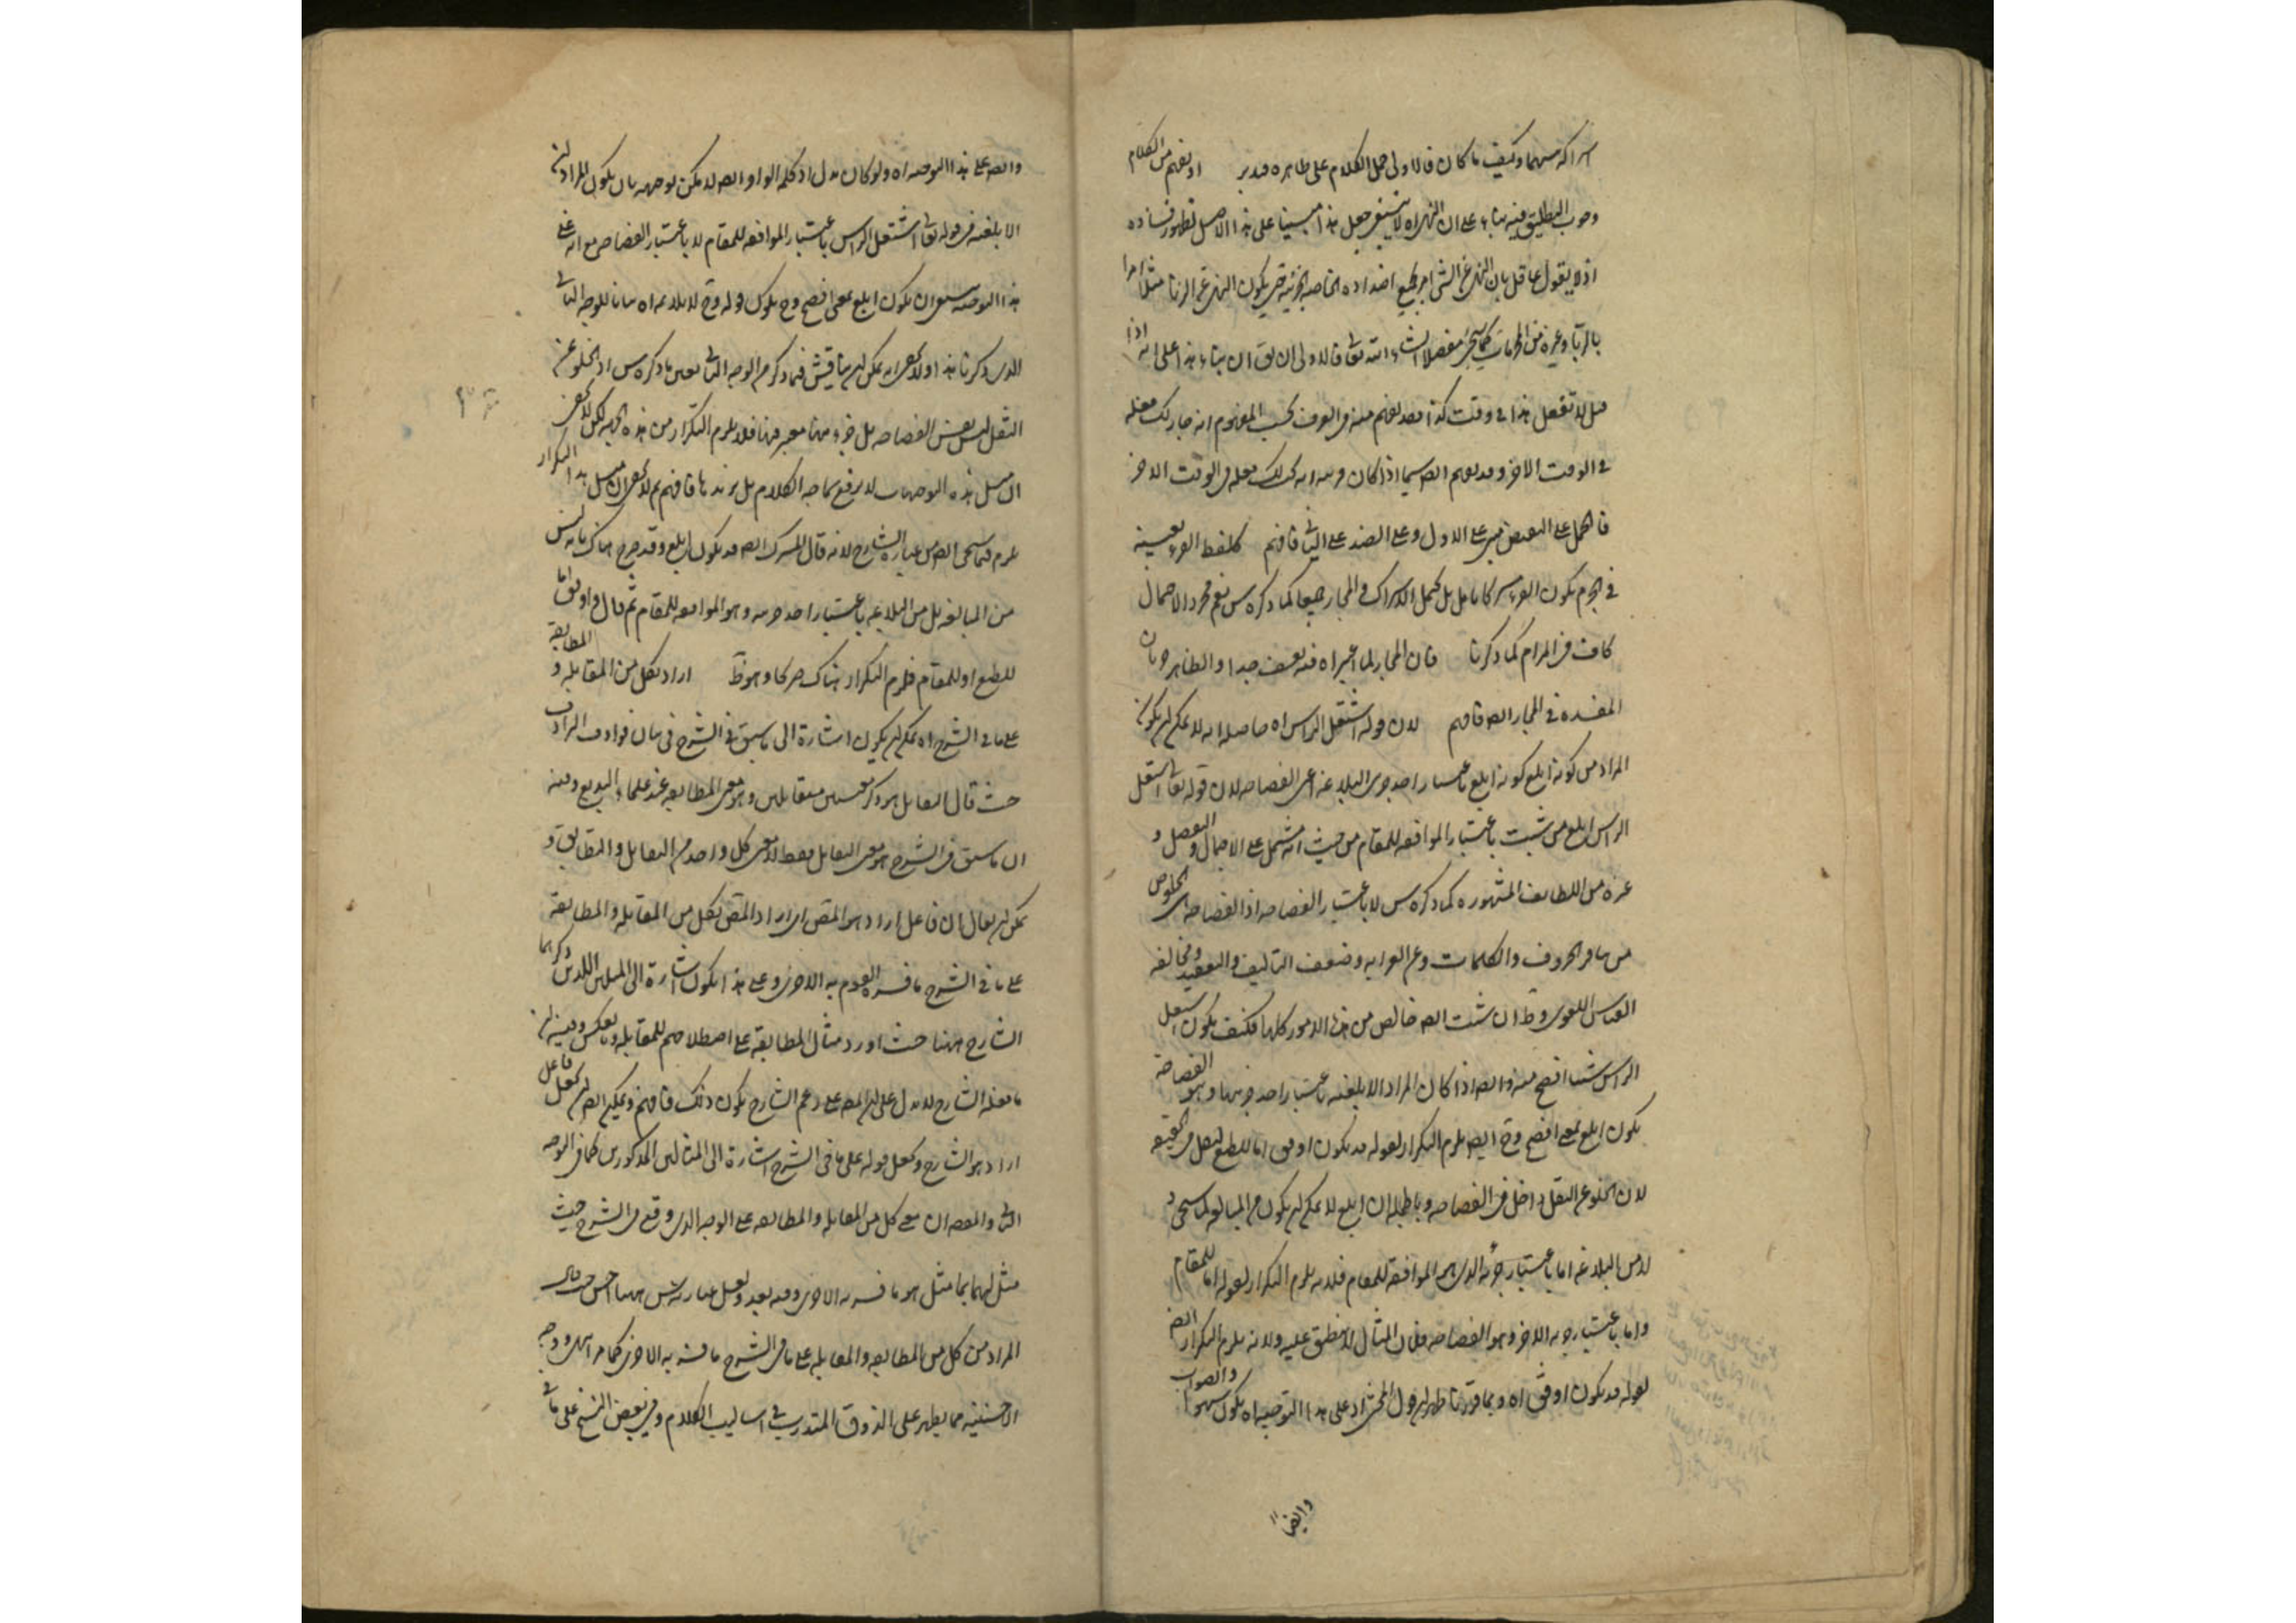 وكيف ما كان فالاولى حمل الكلام على ظاهره فتدبر او يفهم من الكلام
وجوب التطليق فيه بناء على ان النهي اه لا ينبغي جعل هذا مبنيا على هذا الاصل لظهور فساده
اذ لا يقول عاقل بان النهي عن الشئ امر بجميع اضداده الخاصة الجزئية حتى يكون النهي عن الزنا مثلا امرا
بالربا وغيره من المحرمات كما سيجئ مفصلا انشاء الله تعالى فالاولى ان يق ان بناء هذا على انه اذا
قيل لا تفعل هذا في وقت كذا فقد يفهم منه في العرف بحسب المفهوم انه جاز لك فعله
في الوقت الاخر وقد يفهم ايضا سيما اذا كان قرينة انه لك فعله في الوقت الاخر
فالحمل على النقيض مبني على الاول وعلى الضد على الثاني فافهم كلفظ القرء
في المرام كما ذكرنا فان المجاز لما اعم اه فيه تعسف جدا والظاهر جريان
المفسدة في المجاز ايضا فافهم لان قوله اشتعل الراس اه حاصله انه لا يمكن ان يكون
المراد من كونه ابلغ كونه ابلغ باعتبار احد جزئي البلاغة اعني الفصاحة لان قوله تعالى اشتعل
الراس ابلغ من شبت باعتبار الموافقة للمقام من حيث انه مشتمل على الاجمال والتفصيل و
غيره من اللطايف المشهورة كما ذكره س لا باعتبار الفصاحة اذ الفصاحة هي الخلوص
من تنافر الحروف والكلمات وعن الغرابة وضعف التاليف والتعقيد ومخالفة
القياس اللغوي وظ ان شبت ايضا خالص من هذه الامور كلها فكيف يكون اشتعل
الراس شيبا افصح منه وايضا اذا كان المراد الابلغية باعتبار احد جزئيها وهو الفصاحة
يكون ابلغ بمعنى افصح وح ايضا يلزم التكرار لقوله قد يكون اوفق اما للطبع لثقل في الحقيقة
لان الخلو عن الثقل داخل في الفصاحة وبالجملة ان ابلغ لا يمكن ان يكون من المبالغة لما سيجئ و
لا من البلاغة اما باعتبار جزئه الذي هو الموافقة للمقام فلانه يلزم التكرار لقوله اما للمقام
واما باعتبار جزئه الاخر وهو الفصاحة فلان المثال لا ينطبق عليه ولانه يلزم التكرار ايضا
لقوله قد يكون اوفق اه وبما قررنا ظهر ان قول المحشي اد على هذا التوجيه اه يكون سهوا والصواب
وايضا
وايضا على هذا التوجيه اه ولو كان بدل اد كلمة الواو ايضا لا يمكن توجيهه بان يكون المراد ان
الابلغية في قوله تعالى اشتعل الراس باعتبار الموافقة للمقام لا باعتبار الفصاحة مع انه على
هذا التوجيه ينبغي ان يكون ابلغ بمعنى افصح وح يكون قوله وح لا يلايمه اه بيانا للوجه الثاني
الذي ذكرنا هذا ولا يخفى انه يمكن ان يناقش فيما ذكر من الوجه الثاني بعين ما ذكره س اذ الخلو عن
الثقل ليس نفس الفصاحة بل جزء منها معتبر فيها فلا يلزم التكرار من هذه الجهة لكن لا يخفى
ان مثل هذه التوجيهات لا يرفع سماجة الكلام بل يزيدها فافهم ثم لا يخفى ان مثل هذا التكرار
يلزم فيما سيجئ ايضا من عبارة الشارح لانه قال المشترك ايضا قد يكون ابلغ وقد صرح هناك بانه ليس
من المبالغة بل من البلاغة باعتبار احد جزئيه وهو الموافقة للمقام ثم قال او اوفق اما
للطبع او للمقام فلزم التكرار هناك صريحا وهو ظ اراد بكل من المقابلة و المطابقة
على ما في الشرح اه يمكن ان يكون اشارة الى ما سبق في الشرح في بيان فوائد الترادف
حيث قال التقابل هو ذكر معنيين متقابلين وهو معنى المطابقة عند علماء البديع وفيه
ان ما سبق في الشرح هو معنى التقابل فقط لا معنى كل واحد من التقابل والتطابق و
يمكن ان يقال ان فاعل اراد هو المص اي اراد المص بكل من المقابلة والمطابقة
على ما في الشرح ما فسره القوم به الاخرى وعلى هذا يكون اشارة الى المثالين اللذين ذكرهما
الشارح ههنا حيث اورد مثال المطابقة على اصطلاحهم للمقابلة وبالعكس وفيه ان
ما فعله الشارح لا يدل على ان المص على زعم الشارح يكون كذلك فافهم ويمكن ايضا ان يجعل فاعل
اراد هو الشارح ويجعل قوله على ما في الشرح اشارة الى المثالين المذكورين كما في الوجه
الثاني والمعنى ان معنى كل من المقابلة والمطابقة على الوجه الذي وقع في الشرح حيث
مثل لهما بما مثل هو ما فسر به الاخرى وفيه بعد ولعل عبارة س ههنا احسن حيث قال
المراد من كل من المطابقة والمقابلة على ما في الشرح ما فسر به الاخرى كما مر انتهى ووجه
الاحسنية مما يظهر على الذوق المتدرب في اساليب الكلام وفي بعض النسخ على ما في